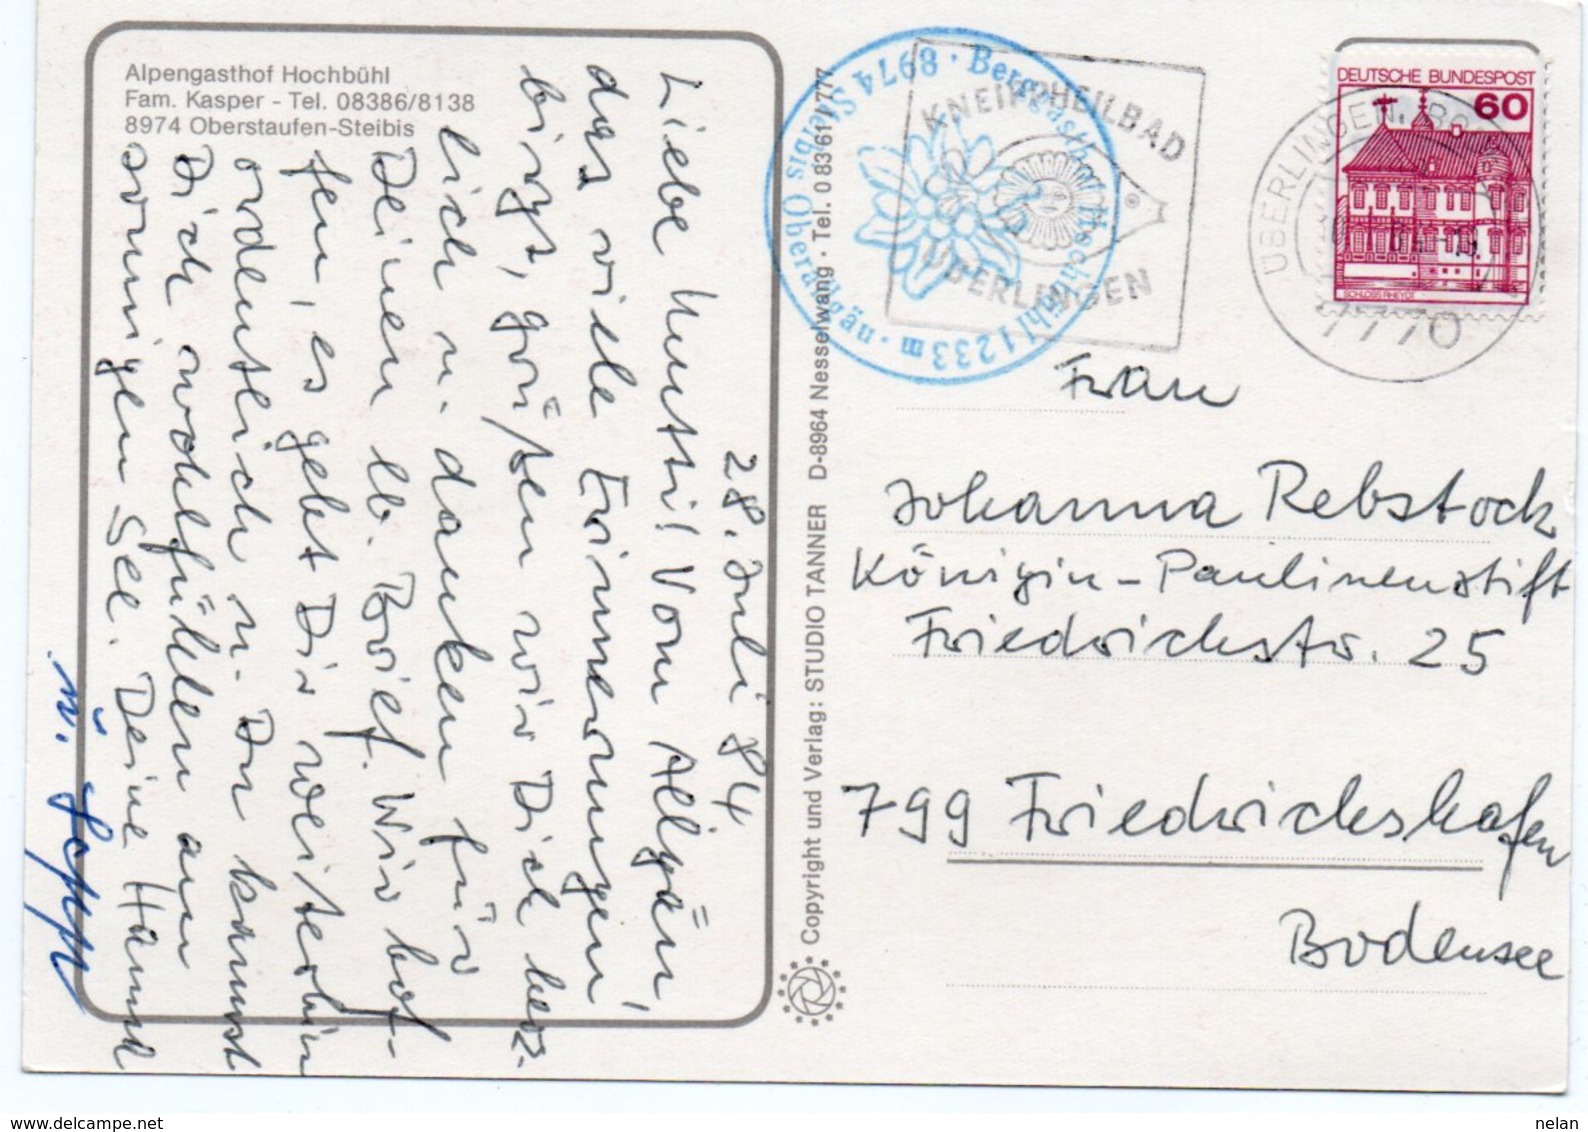 Alpengasthof Hochbühl
Fam. Kasper - Tel. 08386/8138
8974 Oberstaufen-Steibis
28. Juli 84
Liebe Mutti! Vom Allgäu,
das viele Erinnerungen
birgt, grüßen wir Dich herz-
lich u. danken für
Deinen lb. Brief. Wir hof-
fen, es geht Dir weiterhin
ordentlich u. Du kannst
Dich wohlfühlen am
sonnigen See. Deine Hanne
u. Sepp
Copyright und Verlag: STUDIO TANNER D-8964 Nesselwang · Tel. 0 83 61 / 777
8974 Steibis Oberallgäu · Berggasthof Hochbühl 1233 m ·
KNEIPPHEILBAD
ÜBERLINGEN
ÜBERLINGEN, BODENSEE
7770
DEUTSCHE BUNDESPOST
60
SCHLOSS RHEYDT
Frau
Johanna Rebstock
Königin-Paulinenstift
Friedrichstr. 25
799 Friedrichshafen
Bodensee
nelan